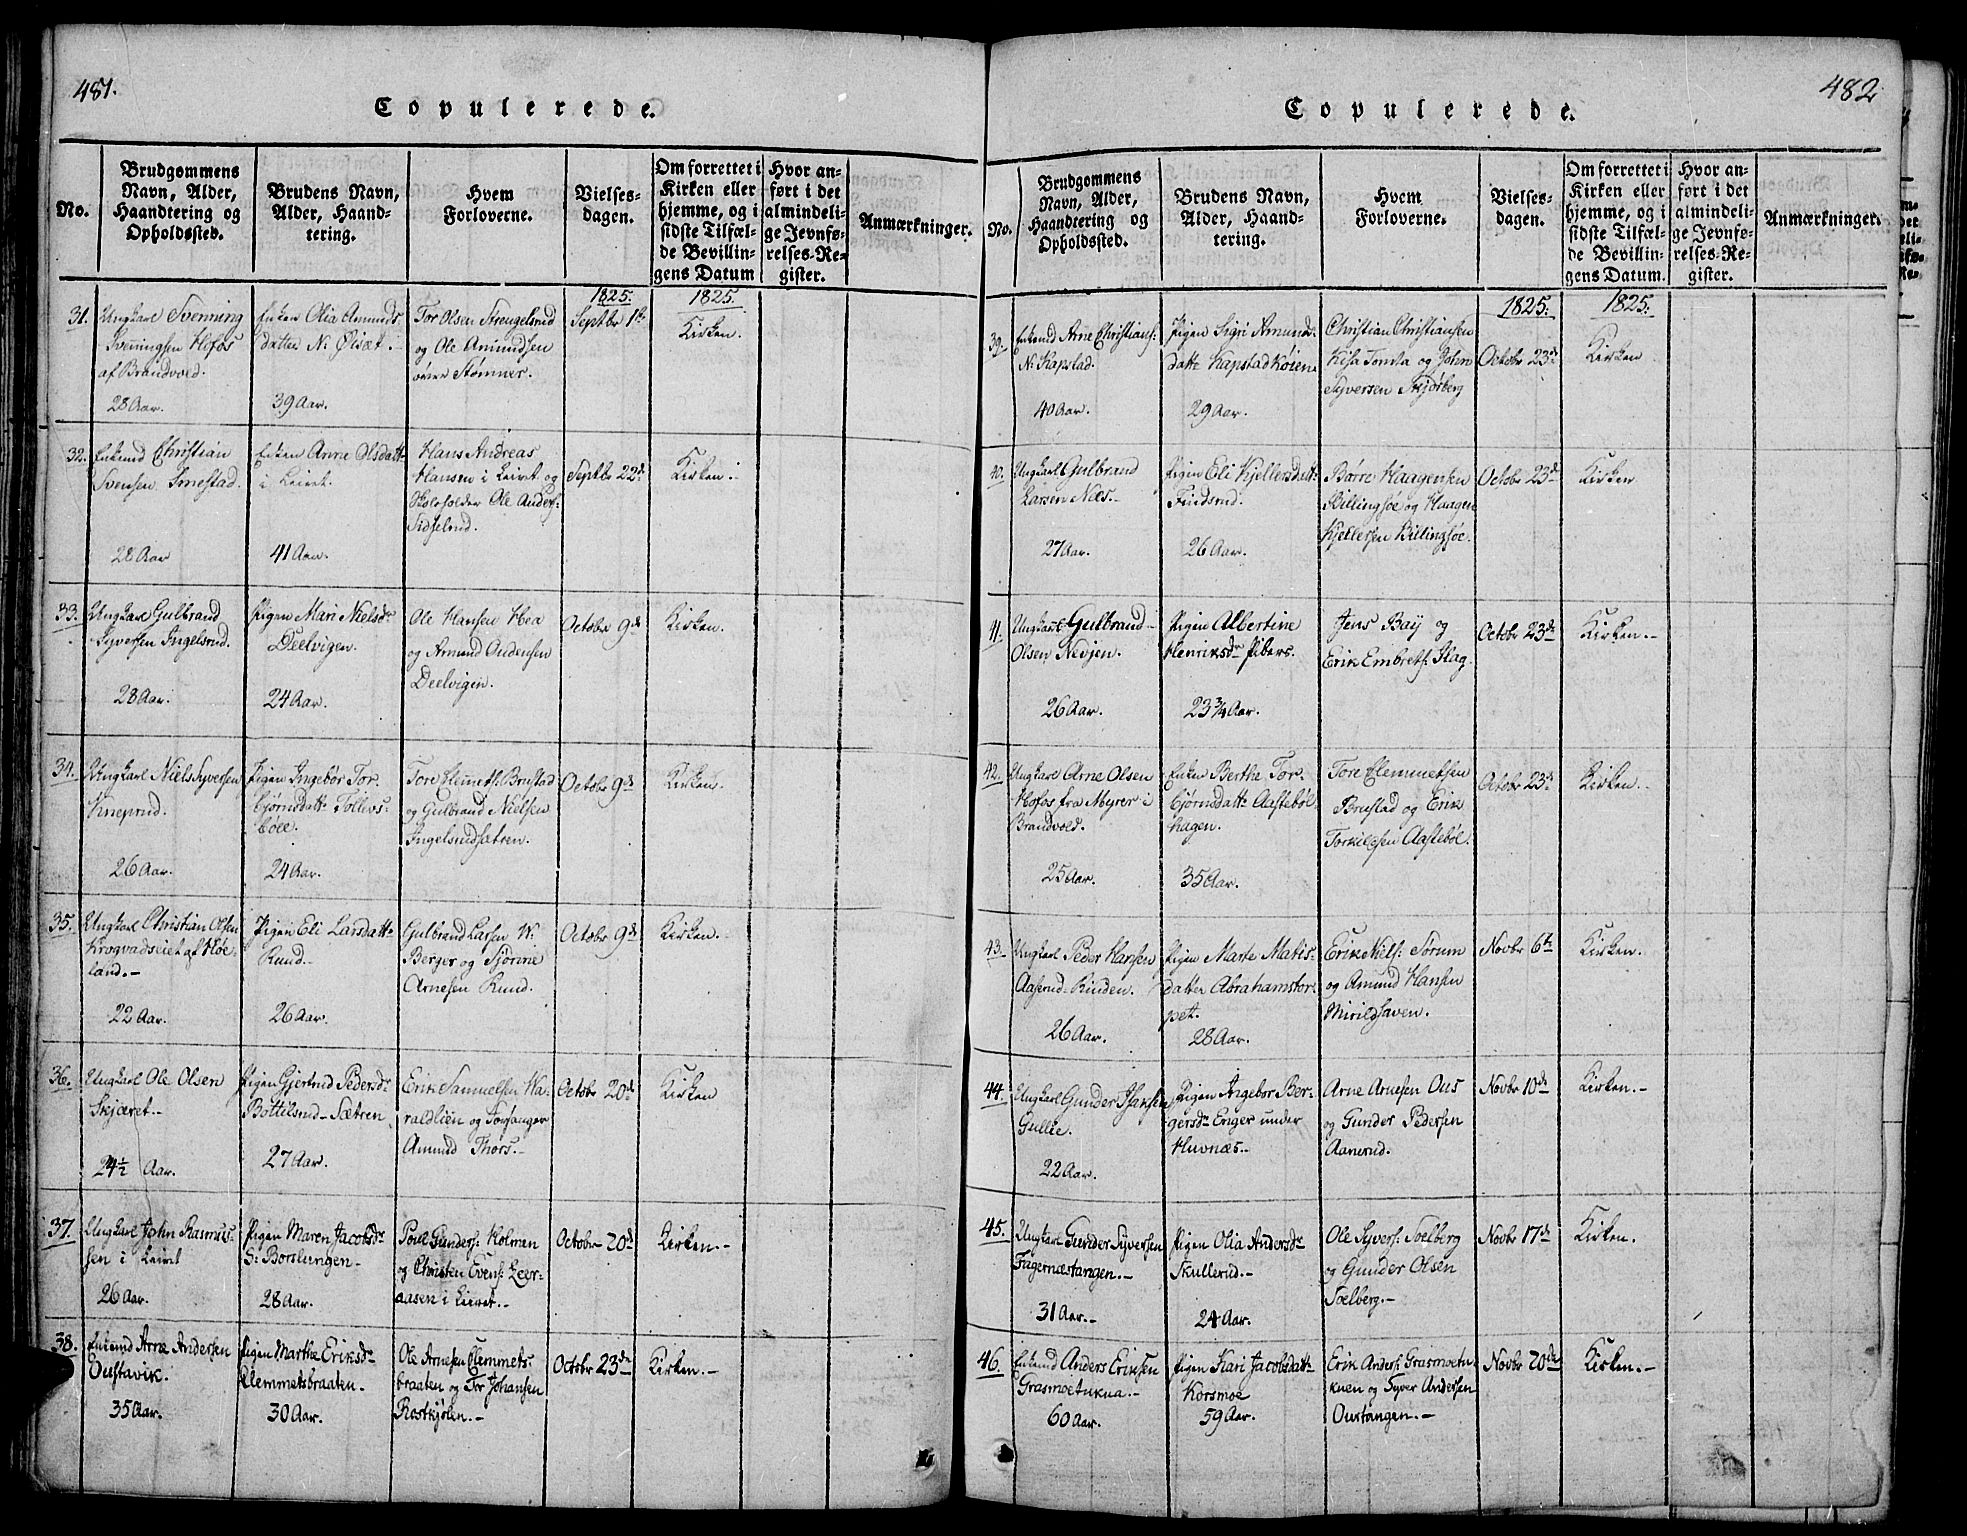 481.
Copulerede.
No.
Brudgommens
Navn, Alder,
Haandtering og
Opholdssted.
Brudens Navn,
Alder, Haand-
tering.
Hvem
Forloverne.
Vielses-
dagen.
Om forrettet i
Kirken eller
hjemme, og i
sidste Tilfæl-
de Bevillin-
gens Datum
Hvor an-
ført i det
almindeli-
ge Jevnfø-
relses-Re-
gister.
Anmærkninger.
1825.
1825.
31.
Ungkarl Svenning
Svenningsen Hofos
af Brandvold.
28 Aar.
Enken Olia Amunds
datter N: Ølsæt.
39 Aar.
Tor Olsen Strengelsrud
og Ole Amundsen
øvre Stømner.
Septbr 1te
Kirken.
32.
Enkemd Christian
Svensen Smestad.
28 Aar
Enken Anne Olsdattr
i Leiret.
41 Aar.
Hans Andreas
Hansen i Leiret og
Skoleholder Ole Anders:
Sidselrud.
Septbr 22de
Kirken.
33.
Ungkarl Gulbrand
Syversen Ingelsrud.
28 Aar.
Pigen Mari Nielsdr
Deelvigen.
24 Aar.
Ole Hansen Hea
og Amund Audensen
Deelvigen.
Octobr 9de
Kirken.
34.
Ungkarl Niels Syversen
Kneprud.
26 Aar.
Pigen Ingebor Tor-
bjørnsdattr Tollevs-
bøle.
24 Aar.
Tore Clemets: Brustad
og Gulbrand Nielsen
Ingelsrudsætren.
Octobr 9de
Kirken.
35.
Ungkarl Christian Olsen
Krogvadseiet af Høe-
land.-
22 Aar.
Pigen Eli Larsdattr
Rund.-
26 Aar.
Gulbrand Larsen W:
Berger og Sjørine
Arnesen Rund.
Octobr 9de
Kirken.
36.
Ungkarl Ole Olsen
Skjæret.-
24½ Aar.
Pigen Gjertrud Pedersdr
Bottilsrud-Sætren
27 Aar.
Erik Samuelsen Wa-
raldlien og Forsanger
Amund Thors.-
Octobr 20de
Kirken
37.
Ungkarl John Rasmus-
sen i Leiret
26 Aar.
Pigen Maren Jacobsdr
S: Borslungen-
28 Aar.
Poul Gunders: Holman
og Christen Evens: Leer-
aasen i Leiret.-
Octobr 20de
Kirken.-
38.
Enkemd Arne Andersen
Oustavik.
35 Aar.
Pigen Marthe Eriksdr
Clemmetsbraaten.
30 Aar.
Ole Arnesen Clemmets-
braaten og Tor Johansen
Rostkjølen.-
Octobr 23de
Kirken.-
482
Copulerede.
No.
Brudgommens
Navn, Alder,
Haandtering og
Opholdssted.
Brudens Navn,
Alder, Haand-
tering.
Hvem
Forloverne.
Vielses-
dagen.
Om forrettet i
Kirken eller
hjemme, og i
sidste Tilfæl-
de Bevillin-
gens Datum.
Hvor an-
ført i det
almindeli-
ge Jevnfø-
relses-Re-
gister.
Anmærkninger.
1825.
1825.
39.
Enkemd Arne Christians:
N: Kapstad.
40 Aar.
Pigen Sigri Amunds
datter Kapstad Koiene
29 Aar.
Christian Christiansen
Kisa Tomta og John
Syversen Skjørberg
Octobr 23de
Kirken
40.
Ungkarl Gulbrand
Larsen Næs.-
27 Aar.
Pigen Eli Kjellersdattr
Findsrud.
26 Aar.
Børre Haagensen
Billingsøe og Haagen
Kjellersen Billingsøe.
Octobr 23de
Kirken
41.
Ungkarl Gulbrand
Olsen Nevjen.
26 Aar.
Pigen Albertine
Henriksdr Pibers.
23 ¾ Aar.
Jens Baÿ og
Erik Embrets: Hag.
Octobr 23de
Kirken.-
42.
Ungkarl Arne Olsen
Hofos fra Myrer i
Brandvold.
25 Aar.
Enken Berthe Tor-
bjørnsdattr Aastebøl-
hagen.
35 Aar.
Tore Clemmetsen
Brustad og Erik
Torkildsen Aastebøl.
Octobr 23de
Kirken.
43.
Ungkarl Peder Hansen
Aaserud-Rinden.
26 Aar.
Pigen Marte Matis-
datter Abrahamstor-
pet.
28 Aar.
Erik Niels: Sørum
og Amund Hansen
Mirildhaven.
Novbr 6te
Kirken.
44.
Ungkarl Gunder Isaksen
Gullie.
22 Aar.
Pigen Angebor Ber-
gersdr Enger under
Huvnæs.-
Arne Arnesen Ous
og Gunder Pedersen
Aanerud.
Novbr 10de
Kirken.-
45.
Ungkarl Gunder Syversen
Fagernæstangen.-
31 Aar.
Pigen Olia Andersdr
Skullerud.-
24 Aar.
Ole Syvers: Soelberg
og Gunder Olsen
Soelberg.-
Novbr 17de
Kirken.
46.
Enkemd Anders Eriksen
Grasmoetukna.-
60 Aar.
Pigen Kari Jacobsdattr
Korsmoe
59 Aar.
Erik Anders: Grasmoetu-
knen og Syver Andersen
Oustangen.-
Novbr 20de
Kirken.-